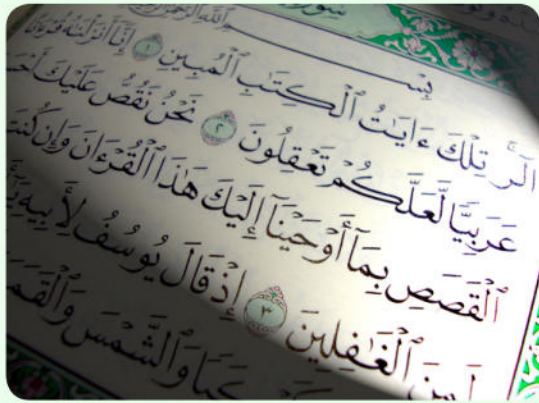 سورة
بِسْمِ ٱللَّهِ ٱلرَّحْمَٰنِ
الٓر تِلْكَ ءَايَٰتُ ٱلْكِتَٰبِ ٱلْمُبِينِ ١ إِنَّآ أَنزَلْنَٰهُ قُرْءَٰنًا
عَرَبِيًّا لَّعَلَّكُمْ تَعْقِلُونَ ٢ نَحْنُ نَقُصُّ عَلَيْكَ
ٱلْقَصَصِ بِمَآ أَوْحَيْنَآ إِلَيْكَ هَٰذَا ٱلْقُرْءَانَ وَإِن كُنتَ
لَمِنَ ٱلْغَٰفِلِينَ ٣ إِذْ قَالَ يُوسُفُ لِأَبِيهِ
وَٱلشَّمْسَ